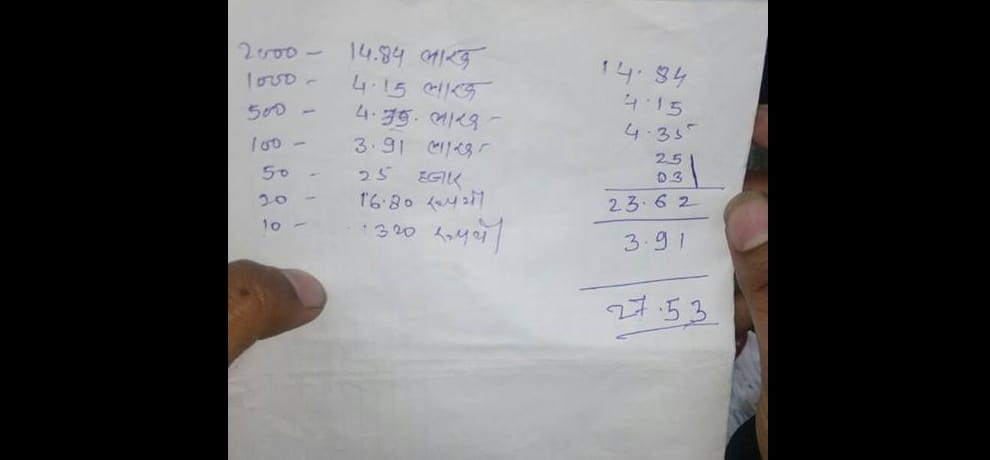 2000 - 14.84 लाख
1000 - 4.15 लाख
500 - 4.35. लाख -
100 - 3.91 लाख
50 - 25 हजार
20 - 16.80 रुपयो
10 - 1320 रुपयो
14.84
4.15
4.35
25
03
23.62
3.91
27.53